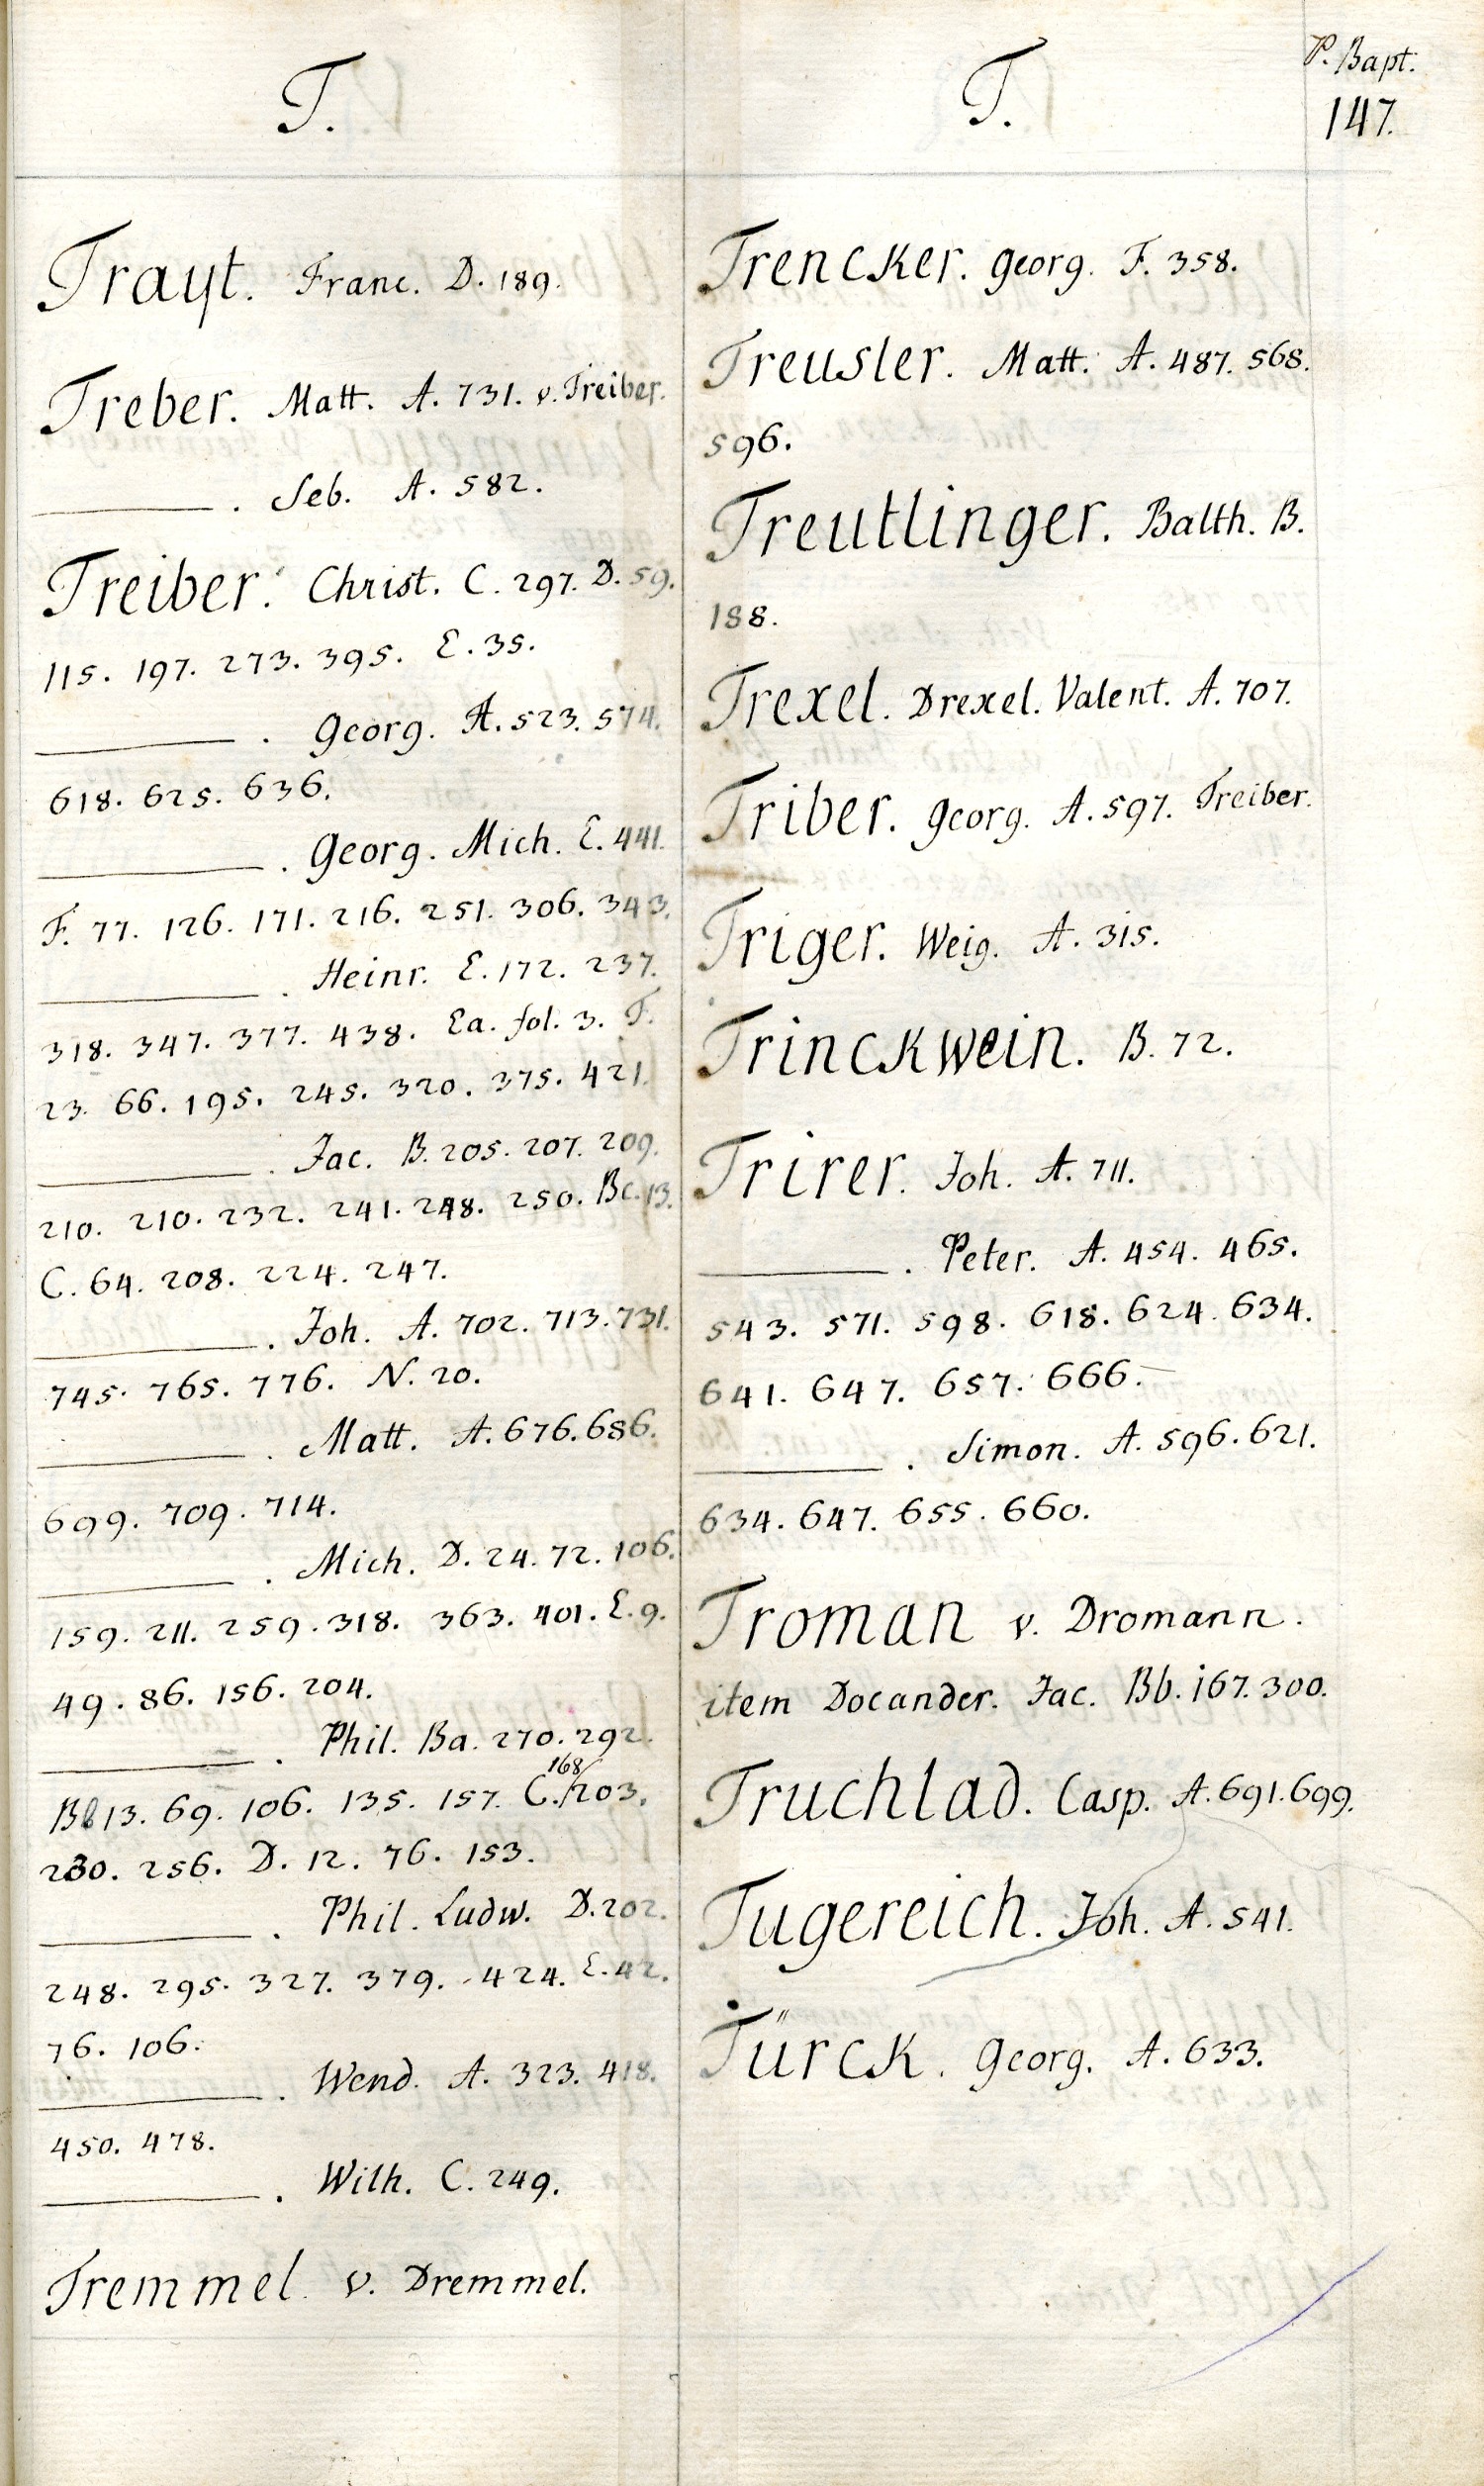 P. Bapt:
147.
T.
Trayt. Franc. D. 189.
Treber. Matt. A. 731. v. Treiber.
———. Seb. A. 582.
Treiber. Christ. C. 297. D. 59.
115. 197. 273. 395. E. 35.
———. Georg. A. 523. 574.
618. 625. 636.
———. Georg. Mich. E. 441.
F. 77. 126. 171. 216. 251. 306. 343.
———. Heinr. E. 172. 237.
318. 347. 377. 438. Ea. fol. 3. F.
23. 66. 195. 245. 320. 375. 421.
———. Jac. B. 205. 207. 209.
210. 210. 232. 241. 248. 250. Bc. 13.
C. 64. 208. 224. 247.
———. Joh. A. 702. 713. 731.
745. 765. 776. N. 20.
———. Matt. A. 676. 686.
699. 709. 714.
———. Mich. D. 24. 72. 106.
159. 211. 259. 318. 363. 401. E. 9.
49. 86. 156. 204.
———. Phil. Ba. 270. 292.
Bb 13. 69. 106. 135. 157. C. 168/ 203.
230. 256. D. 12. 76. 153.
———. Phil. Ludw. D. 202.
248. 295. 327. 379. 424. E. 42.
76. 106.
———. Wend. A. 323. 418.
450. 478.
———. Wilh. C. 249.
Tremmel. v. Dremmel.
T.
Trencker. Georg. F. 358.
Treusler. Matt. A. 487. 568.
596.
Treutlinger. Balth. B.
188.
Trexel. Drexel. Valent. A. 707.
Triber. Georg. A. 597. Treiber.
Triger. Weig. A. 315.
Trinckwein. B. 72.
Trirer. Joh. A. 711.
———. Peter. A. 454. 465.
543. 571. 598. 618. 624. 634.
641. 647. 657. 666.
———. Simon. A. 596. 621.
634. 647. 655. 660.
Troman v. Dromann.
item Docander. Jac. Bb. 167. 300.
Truchlad. Casp. A. 691. 699.
Tugereich. Joh. A. 541.
Türck. Georg. A. 633.